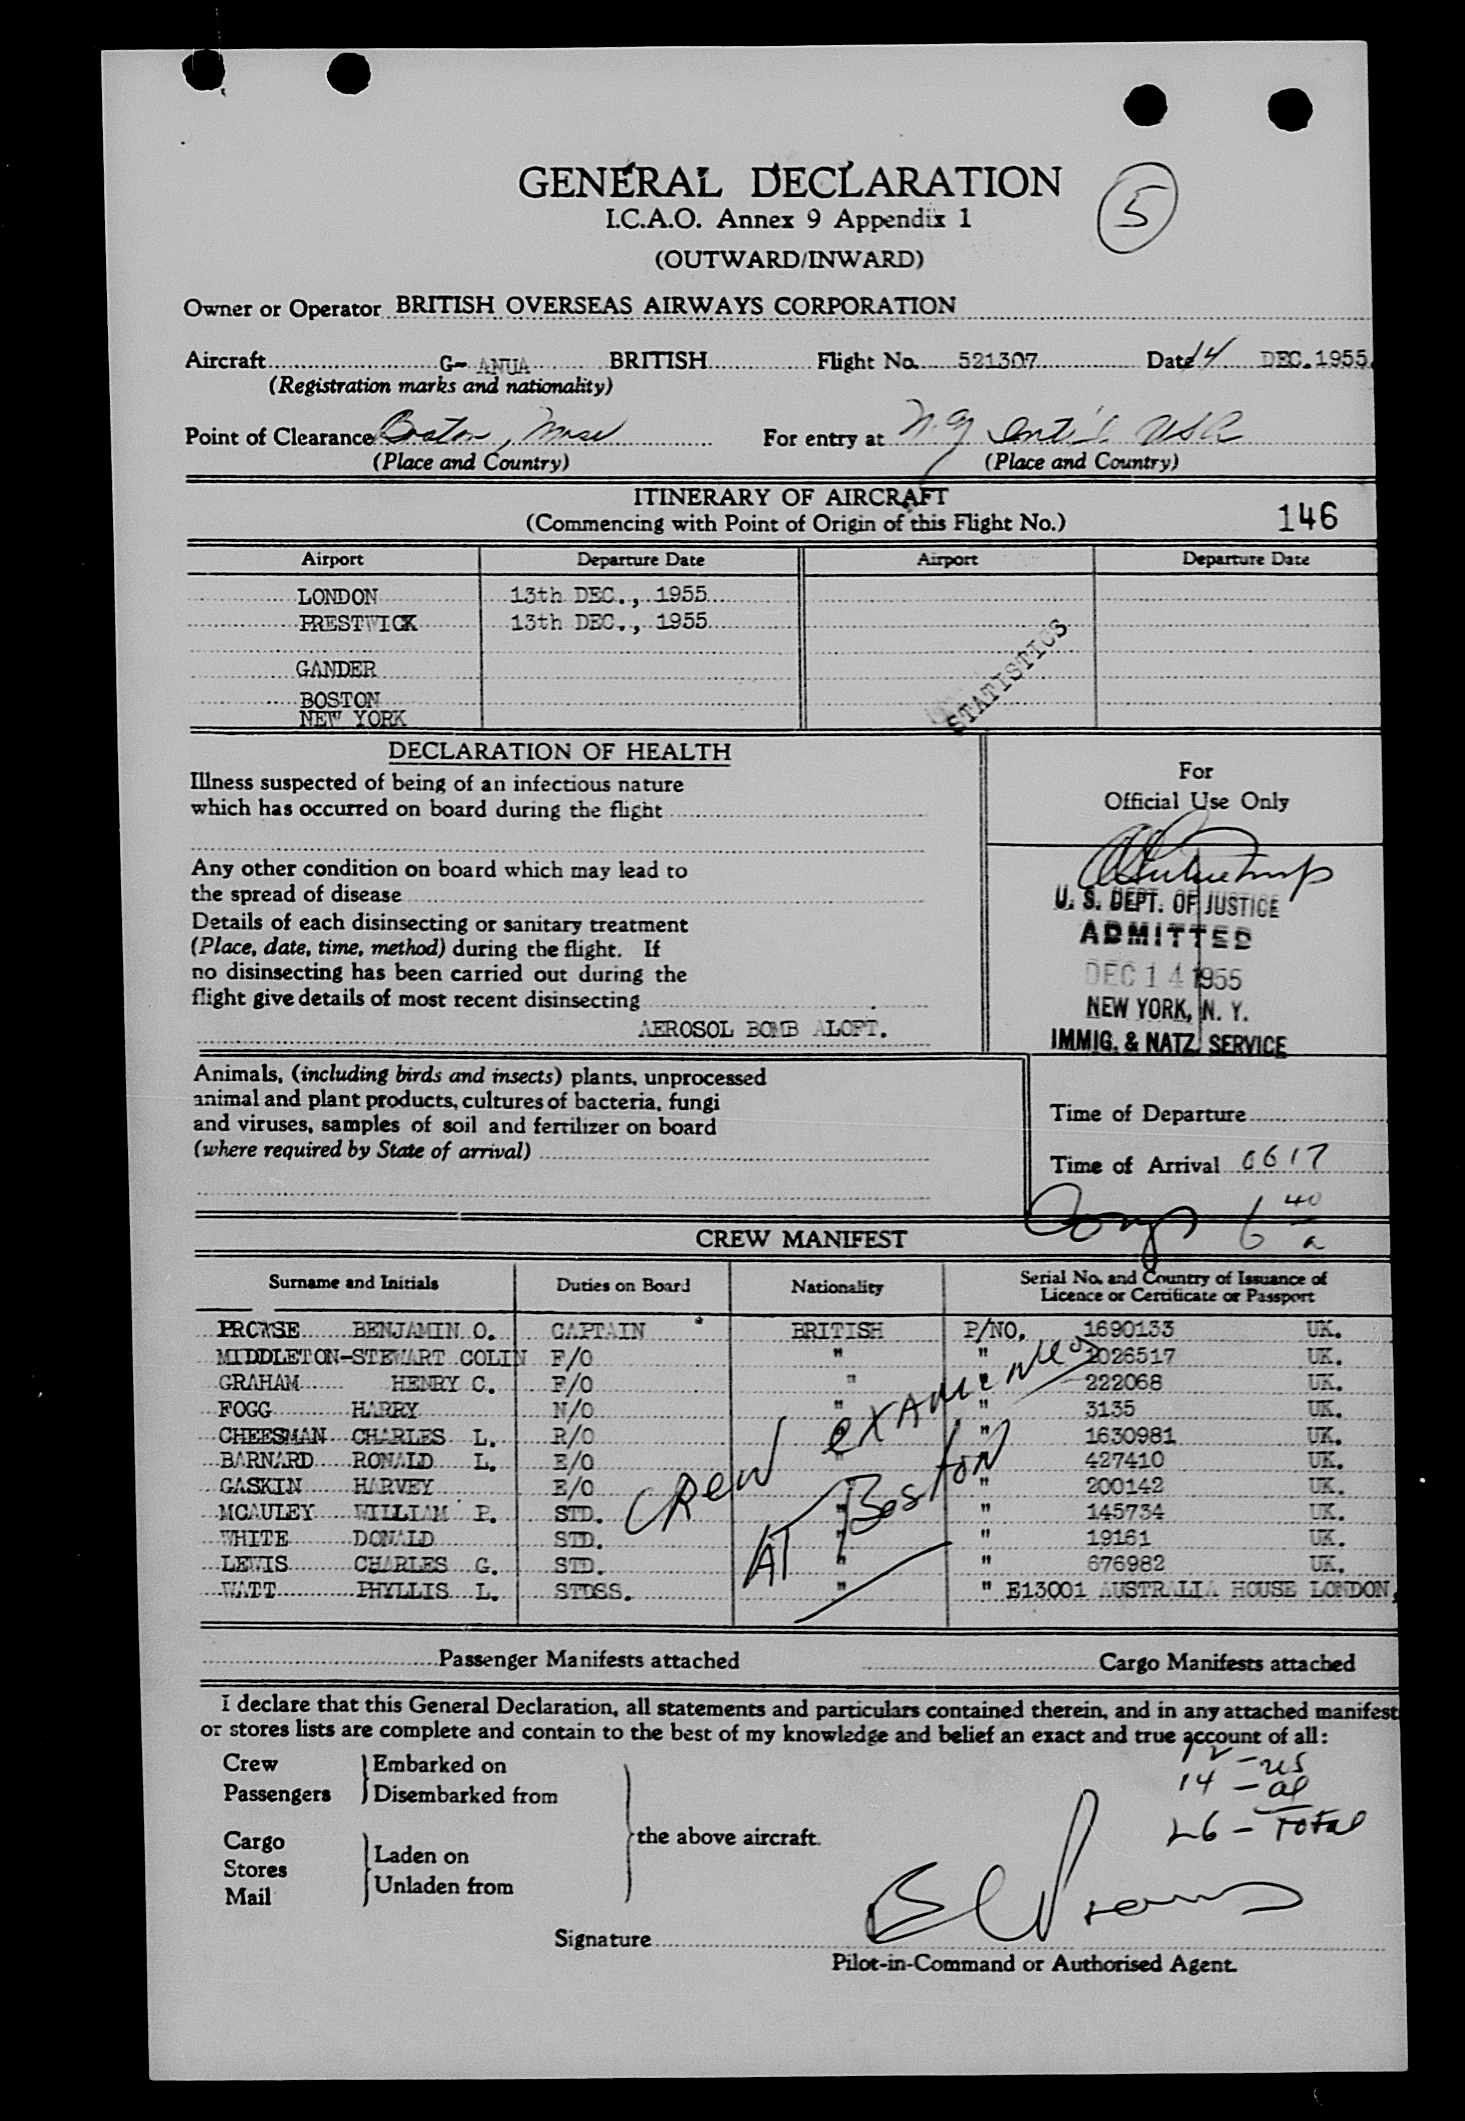 GENERAL DECLARATION
5
I.C.A.O. Annex 9 Appendix 1
(OUTWARD/INWARD)
Owner or Operator BRITISH OVERSEAS AIRWAYS CORPORATION
Aircraft G- ANUA BRITISH Flight No. 521307 Date 14 DEC. 1955.
(Registration marks and nationality)
Point of Clearance Boston, Mass For entry at N.Y. USA
(Place and Country) (Place and Country)
ITINERARY OF AIRCRAFT
(Commencing with Point of Origin of this Flight No.) 146
Airport Departure Date Airport Departure Date
LONDON 13th DEC., 1955
PRESTWICK 13th DEC., 1955
GANDER
BOSTON
NEW YORK
STATISTICS
DECLARATION OF HEALTH
Illness suspected of being of an infectious nature
which has occurred on board during the flight
Any other condition on board which may lead to
the spread of disease
Details of each disinsecting or sanitary treatment
(Place, date, time, method) during the flight. If
no disinsecting has been carried out during the
flight give details of most recent disinsecting
AEROSOL BOMB ALOFT.
For
Official Use Only
U. S. DEPT. OF JUSTICE
ADMITTED
DEC 14 1955
NEW YORK, N. Y.
IMMIG. & NATZ. SERVICE
Animals, (including birds and insects) plants, unprocessed
animal and plant products, cultures of bacteria, fungi
and viruses, samples of soil and fertilizer on board
(where required by State of arrival)
Time of Departure
Time of Arrival 0617
6 40 a
CREW MANIFEST
Surname and Initials Duties on Board Nationality Serial No. and Country of Issuance of
Licence or Certificate or Passport
PROWSE BENJAMIN O. CAPTAIN BRITISH P/NO. 1690133 UK.
MIDDLETON-STEWART COLIN F/O " " 2026517 UK.
GRAHAM HENRY C. F/O " " 222068 UK.
FOGG HARRY N/O " " 3135 UK.
CHEESMAN CHARLES L. R/O " " 1630981 UK.
BARNARD RONALD L. E/O " " 427410 UK.
GASKIN HARVEY E/O " " 200142 UK.
MCAULEY WILLIAM P. STD. " " 145734 UK.
WHITE DONALD STD. " " 19161 UK.
LEWIS CHARLES G. STD. " " 676982 UK.
WATT PHYLLIS L. STDSS. " " E13001 AUSTRALIA HOUSE LONDON.
CREW EXAMINED
AT Boston
Passenger Manifests attached Cargo Manifests attached
I declare that this General Declaration, all statements and particulars contained therein, and in any attached manifest
or stores lists are complete and contain to the best of my knowledge and belief an exact and true account of all:
12 - US
14 - al
26 - Total
Crew Embarked on
Passengers Disembarked from
the above aircraft.
Cargo Laden on
Stores
Mail Unladen from
Signature
Pilot-in-Command or Authorised Agent.